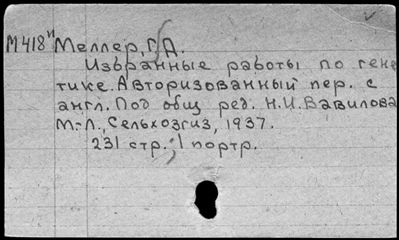 М418и Меллер, Г.Д.
Избранные работы по гене
тике. Авторизованный пер. с
англ. Под общ ред. Н.И. Вавилова
М.-Л., Сельхозгиз, 1937.
231 стр., 1 портр.